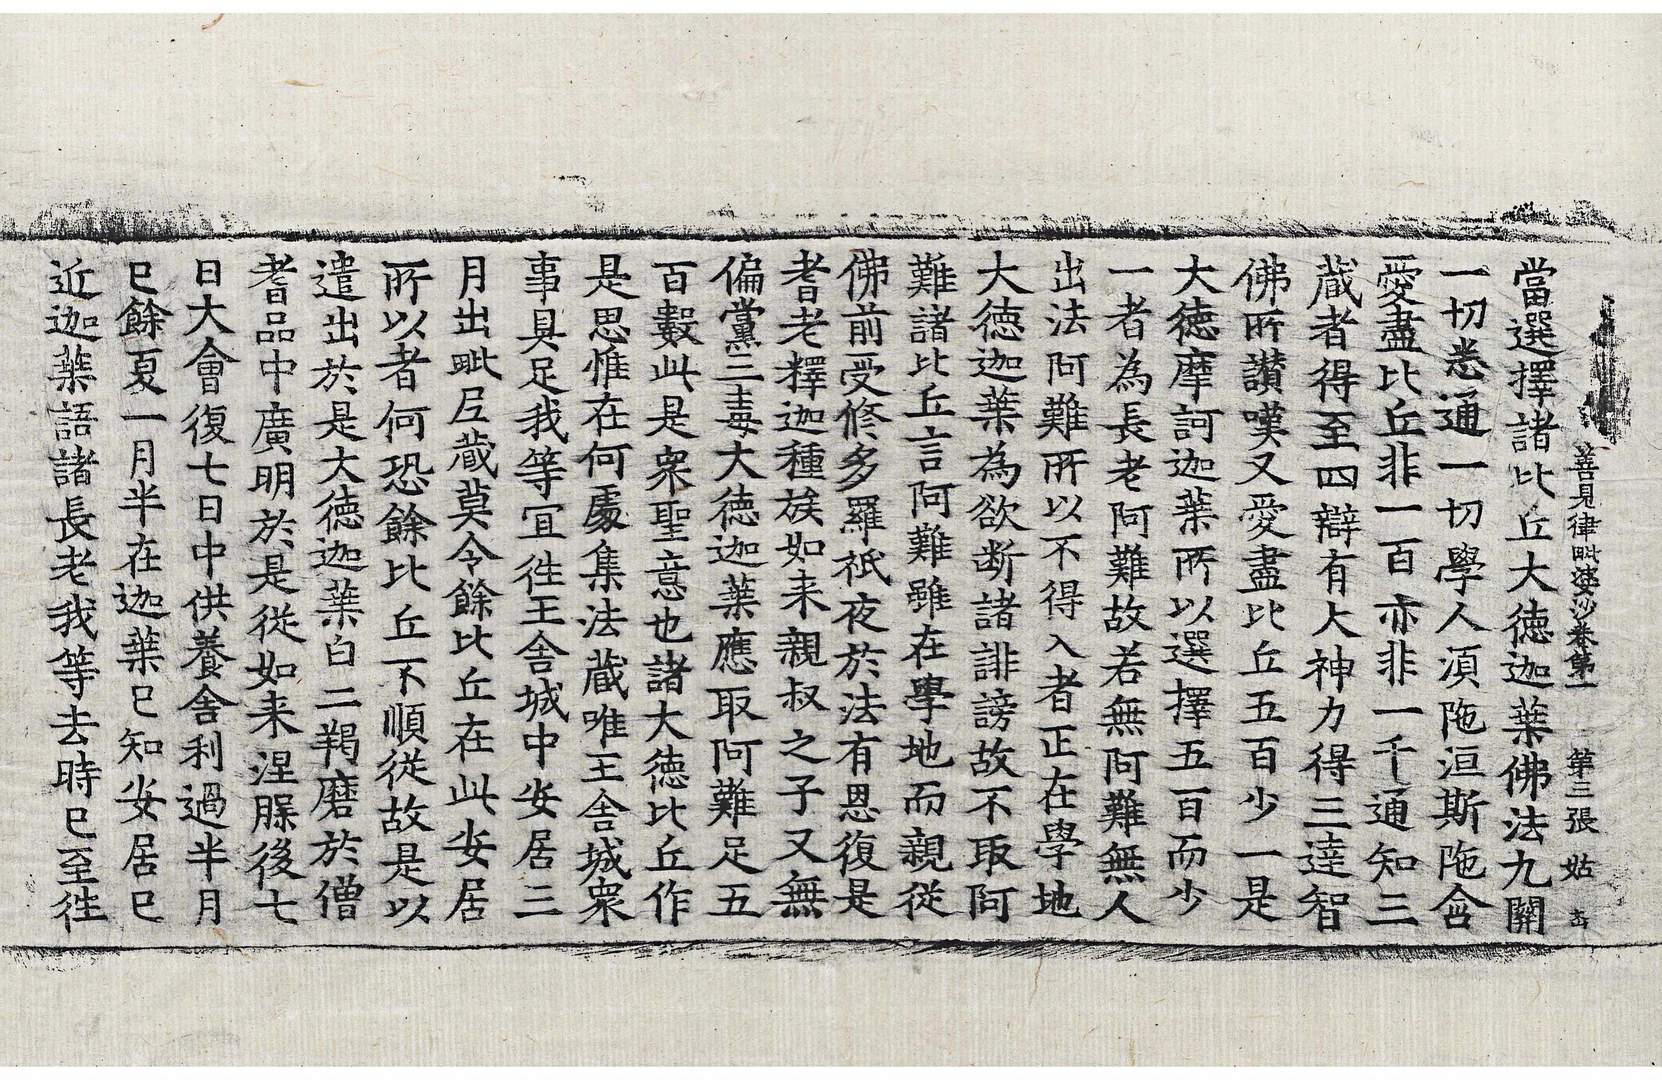 善見律毗婆沙卷第一 第三張 姑
當選擇諸比丘大徳迦葉佛法九關
一切悉通一切學人湏陁洹斯陁含
愛盡比丘非一百亦非一千通知三
蔵者得至四辯有大神力得三達智
佛所讃嘆又愛盡比丘五百少一是
大徳摩訶迦葉所以選擇五百而少
一者為長老阿難故若無阿難無人
出法阿難所以不得入者正在學地
大徳迦葉為欲断諸誹謗故不取阿
難諸比丘言阿難雖在學地而親従
佛前受修多羅祇夜於法有恩復是
耆老釋迦種族如来親叔之子又無
偏黨三毒大徳迦葉應取阿難足五
百數此是衆聖意也諸大徳比丘作
是思惟在何處集法蔵唯王舎城衆
事具足我等宜徃王舎城中安居三
月出毗尼蔵莫令餘比丘在此安居
所以者何恐餘比丘不順従故是以
遣出於是大徳迦葉白二羯磨於僧
耆品中廣明於是従如来涅槃後七
日大會復七日中供養舎利過半月
已餘夏一月半在迦葉已知安居已
近迦葉語諸長老我等去時已至徃